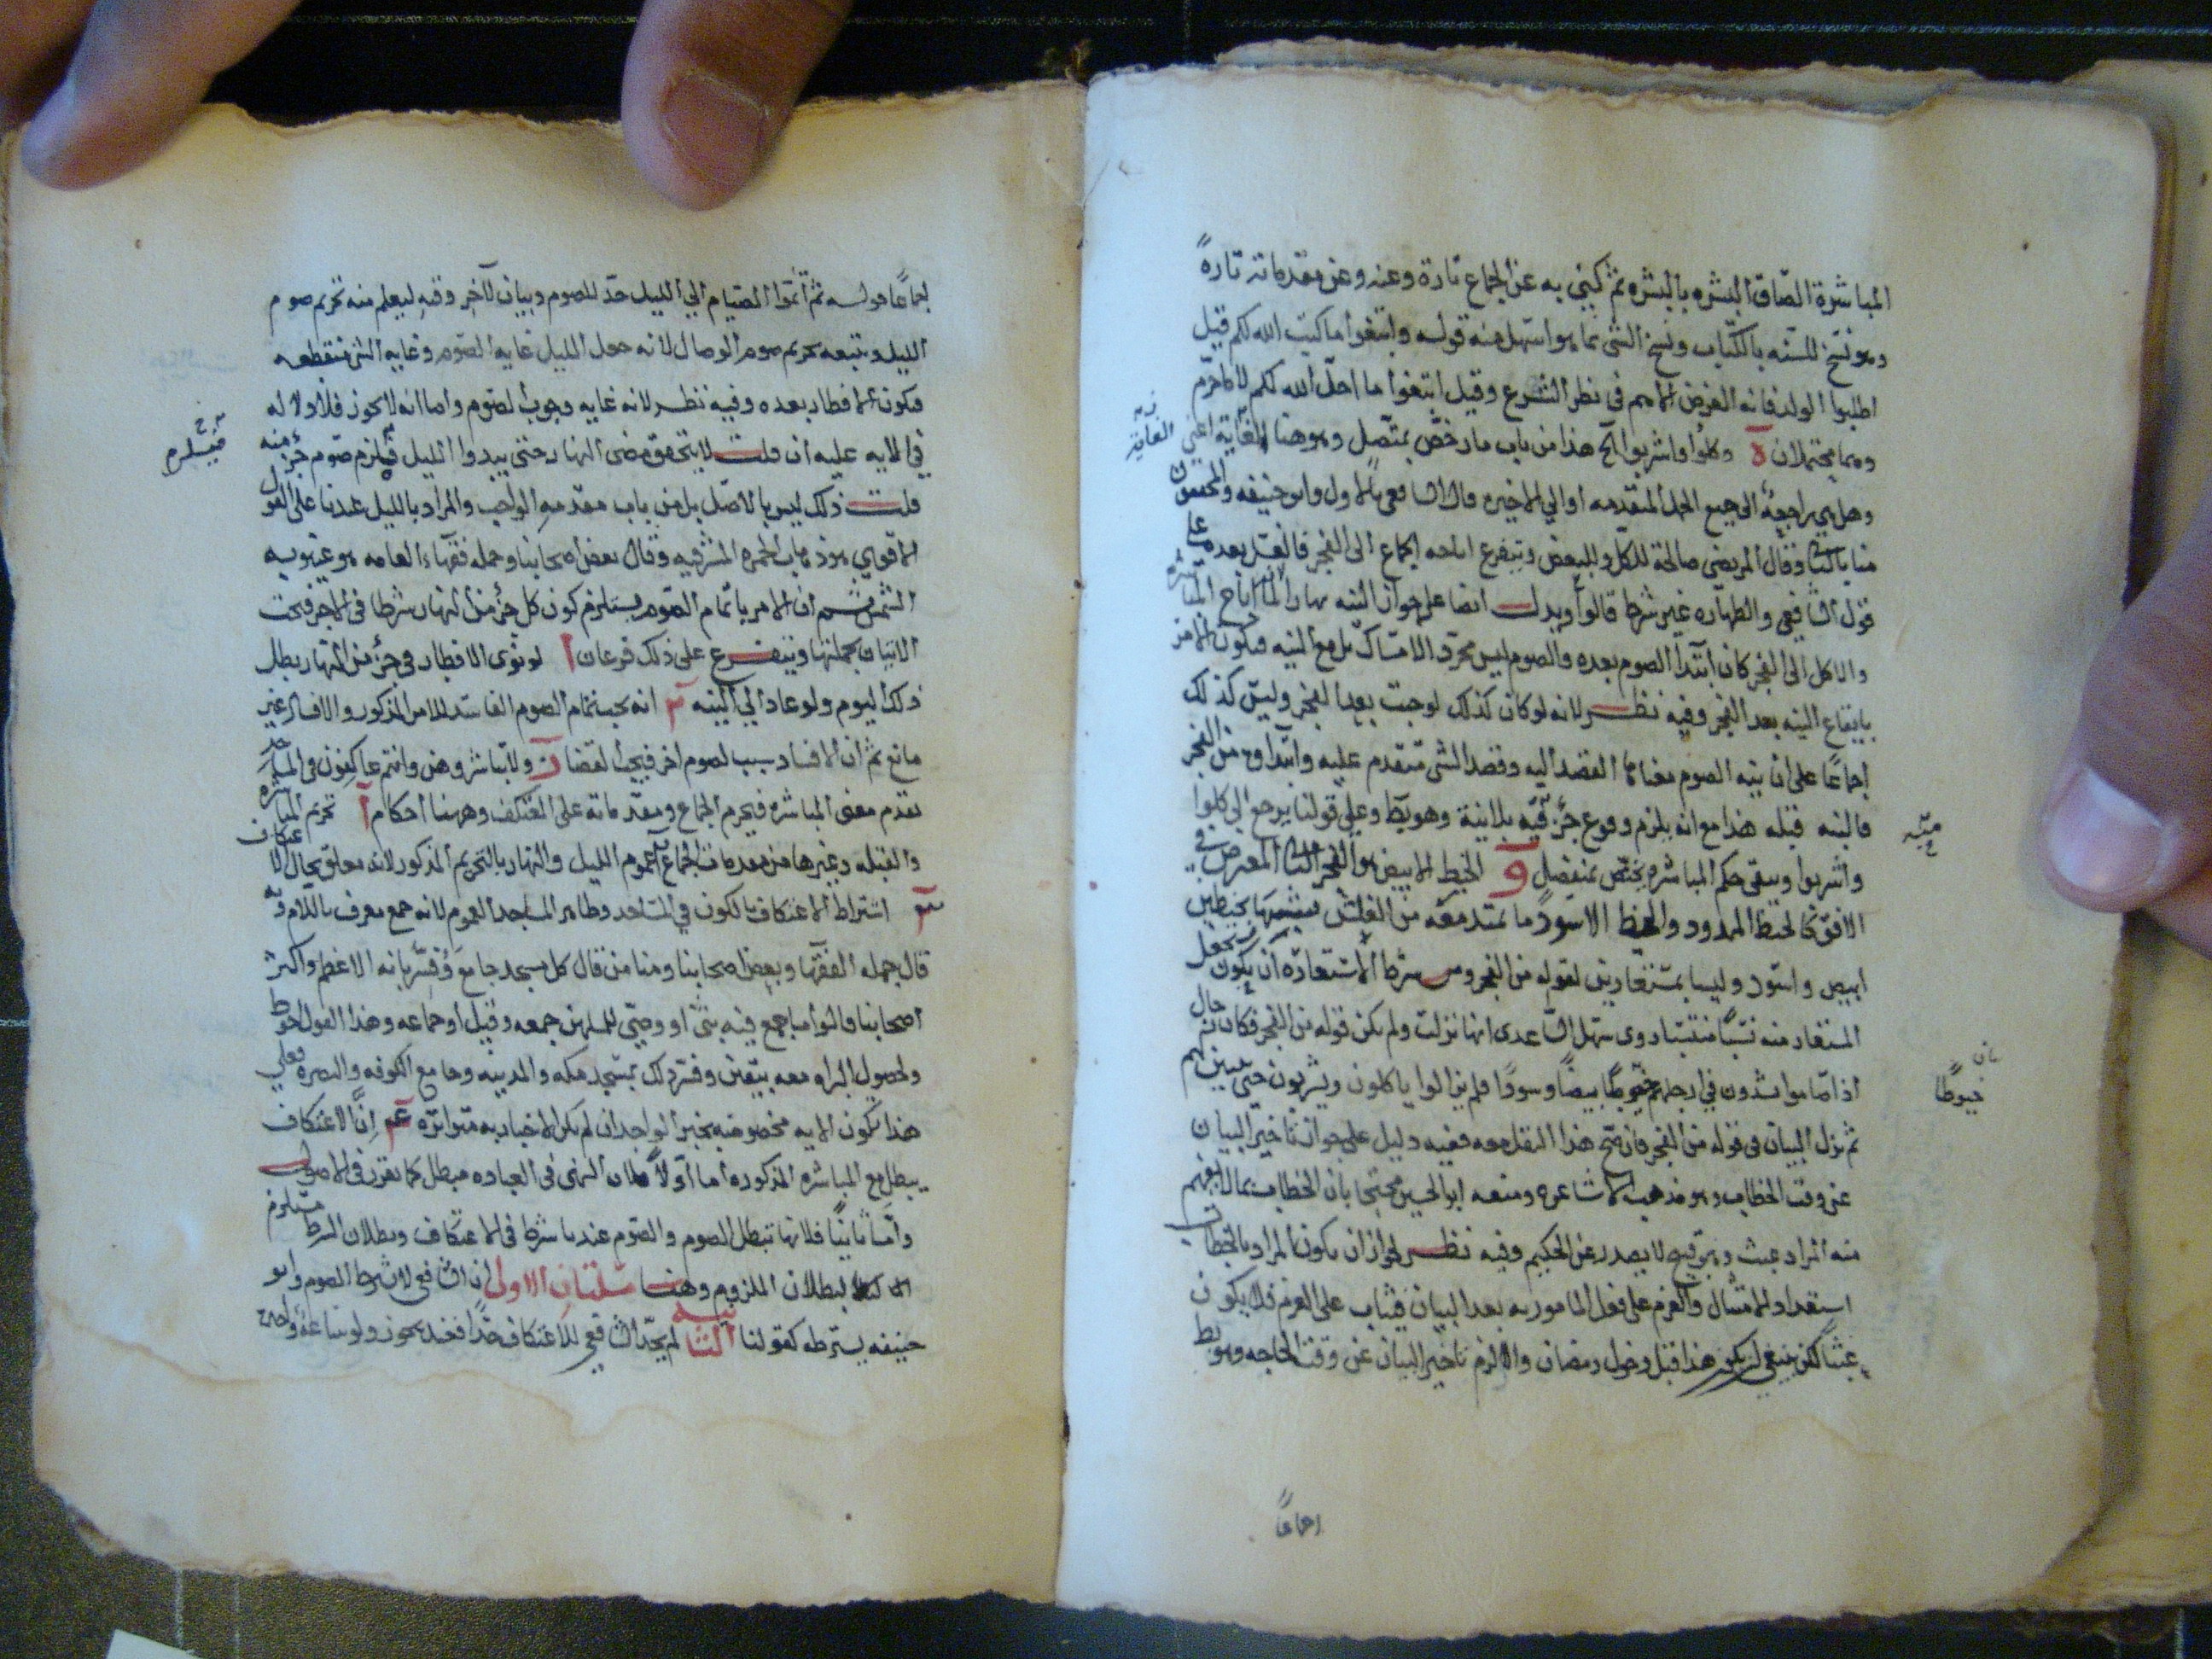 المباشرة الصاق البشره بالبشره ثم كنى به عن الجماع تارة وعنه وعن مقدماته تارةً
وهو نسخ للسنه بالكتاب ونسخ الشى بما هو اسهل منه قوله وابتغوا ما كتب الله لكم قيل
اطلبوا الولد فانه الغرض الاهم فى نظر الشرع وقيل ابتغوا ما احل الله لكم لا ما حرم
وهما محتملان ه وكلوا واشربوا الخ هذا من باب ما رخص بمتصل وهو هنا الغاية اعنى
وهل هى راجعة الى جميع الجمل المتقدمه او الى الاخيره قال الشافعى بالاول وابو حنيفه والمحققون
منا بالثانى وقال المرتضى صالحة للكل وللبعض ويتفرع اباحه الجماع الى الفجر فالغسل بعده على
قول الشافعى والطهاره غير شرط قالوا ويدل ايضا على جواز النيه نهارا لانه لما اباح المباشره
والاكل الى الفجر كان ابتدا الصوم بعده والصوم ليس مجرد الامساك بل مع النيه فيكون الامر
بايقاع النيه بعد الفجر وفيه نظر لانه لو كان كذلك لوجبت بعد الفجر وليس كذلك
اجماعًا على ان نيه الصوم معناها القصد اليه وقصد الشى متقدم عليه وابتداوه من الفجر
فالنيه قبله هذا مع انه يلزم وقوع جزء فيه بلا نية وهو بط وعلى قولنا يرجع الى كلوا
واشربوا ويبقى حكم المباشره يختص بمنفصل و الخيط الابيض هو الفجر الثانى المعترض فى
الافق كالخيط الممدود والخيط الاسود ما يمتد معه من الغلس شبههما بخيطين
ابيض واسود وليسا بمستعارين لقوله من الفجر ومن شرط الاستعاره ان يكون
المستعار منه نسيًا منسيا روى سهل الساعدى انها نزلت ولم يكن قوله من الفجر فكان رجال
اذا صاموا يشدون فى ارجلهم خيوطا بيضًا وسودًا فلم يزالوا ياكلون ويشربون حتى يتبين لهم
ثم نزل البيان فى قوله من الفجر فان صح هذا النقل معه ففيه دليل على جواز تاخير البيان
عن وقت الخطاب وهو مذهب الاشاعره ومنعه ابو الحسين محتجا بان الخطاب بما لا يفهم
منه المراد عبث وهو قبيح لا يصدر عن الحكيم وفيه نظر لجواز ان يكون المراد بالخطاب
استعداد للامتثال والعزم على فعل المامور به بعد البيان فيثاب على العزم فلا يكون
عبثًا لكن ينبغى ان يكون هذا قبل دخول رمضان والا لزم تاخير البيان عن وقت الحاجه وهو بط
اجماعًا
الغاية
خيوطًا
اجماعًا قوله ثم اتموا الصيام الى الليل حدّ للصوم وبيان لآخر وقته ليعلم منه تحريم صوم
الليل ويتبعه تحريم صوم الوصال لانه جعل الليل غايه الصوم وغايه الشى منقطعه
فيكون الافطار بعده وفيه نظر لانه غايه وجوب الصوم واما انه لا يجوز فلا دلاله
فى الايه عليه ان قلت لا يتحقق مضى النهار حتى يبدوا الليل فيلزم صوم جزء منه
قلت ذلك ليس بالاصل بل من باب مقدمه الواجب والمراد بالليل عندنا على القول
الاقوى هو ذهاب الحمره المشرقيه وقال بعض اصحابنا وجمله فقهاء العامه هو غيبوبه
الشمس ثم ان الامر باتمام الصوم يستلزم كون كل جزء من النهار شرطا فى الاخر فيجب
الاتيان بجملتها ويتفرع على ذلك فرعان أ لو نوى الافطار فى جزء من النهار بطل
ذلك اليوم ولو عاد الى النيه ب انه يجب تمام الصوم الفاسد للامر المذكور والافساد غير
مانع ثم ان الافساد سبب لصوم اخر فيجب القضا ز ولا تباشروهن وانتم عاكفون فى المساجد
تقدم معنى المباشره فيحرم الجماع ومقدماته على المعتكف وههنا احكام أ تحريم المباشره
والقبله وغيرها من مقدمات الجماع لعموم الليل والنهار بالتحريم المذكور لانه معلق بحال الاعتكاف
ب اشتراط الاعتكاف بالكون فى المساجد وظاهر المساجد العموم لانه جمع معرف باللام وبه
قال جمله الفقها وبعض اصحابنا ومنا من قال كل مسجد جامع وفسر بانه الاعظم واكثر
اصحابنا قالوا ما جمع فيه نبى او وصى للمسلمين جمعه وقيل او جماعه وهذا القول احوط
ولحصول البراه معه بيقين وفسر ذلك بمسجد مكه والمدينه وجامع الكوفه والبصره فعلى
هذا يكون الايه مخصوصه بخبر الواحد ان لم يكن الاخبار به متواتره ج ان الاعتكاف
يبطل مع المباشره المذكوره اما اولا فلان النهى فى العباده مبطل كما تقرر فى الاصول
وأمّا ثانيًا فلانها تبطل الصوم والصوم عندنا شرط فى الاعتكاف وبطلان الشرط مستلزم
لبطلان الملزوم وهنا مسئلتان الاولى ان الشافعى لا يشترط الصوم وابو
حنيفه يشترطه كقولنا الثانيه لم يحد الشافعى للاعتكاف حدًا فعنده يجوز ولو ساعة واحده
فيستلزم